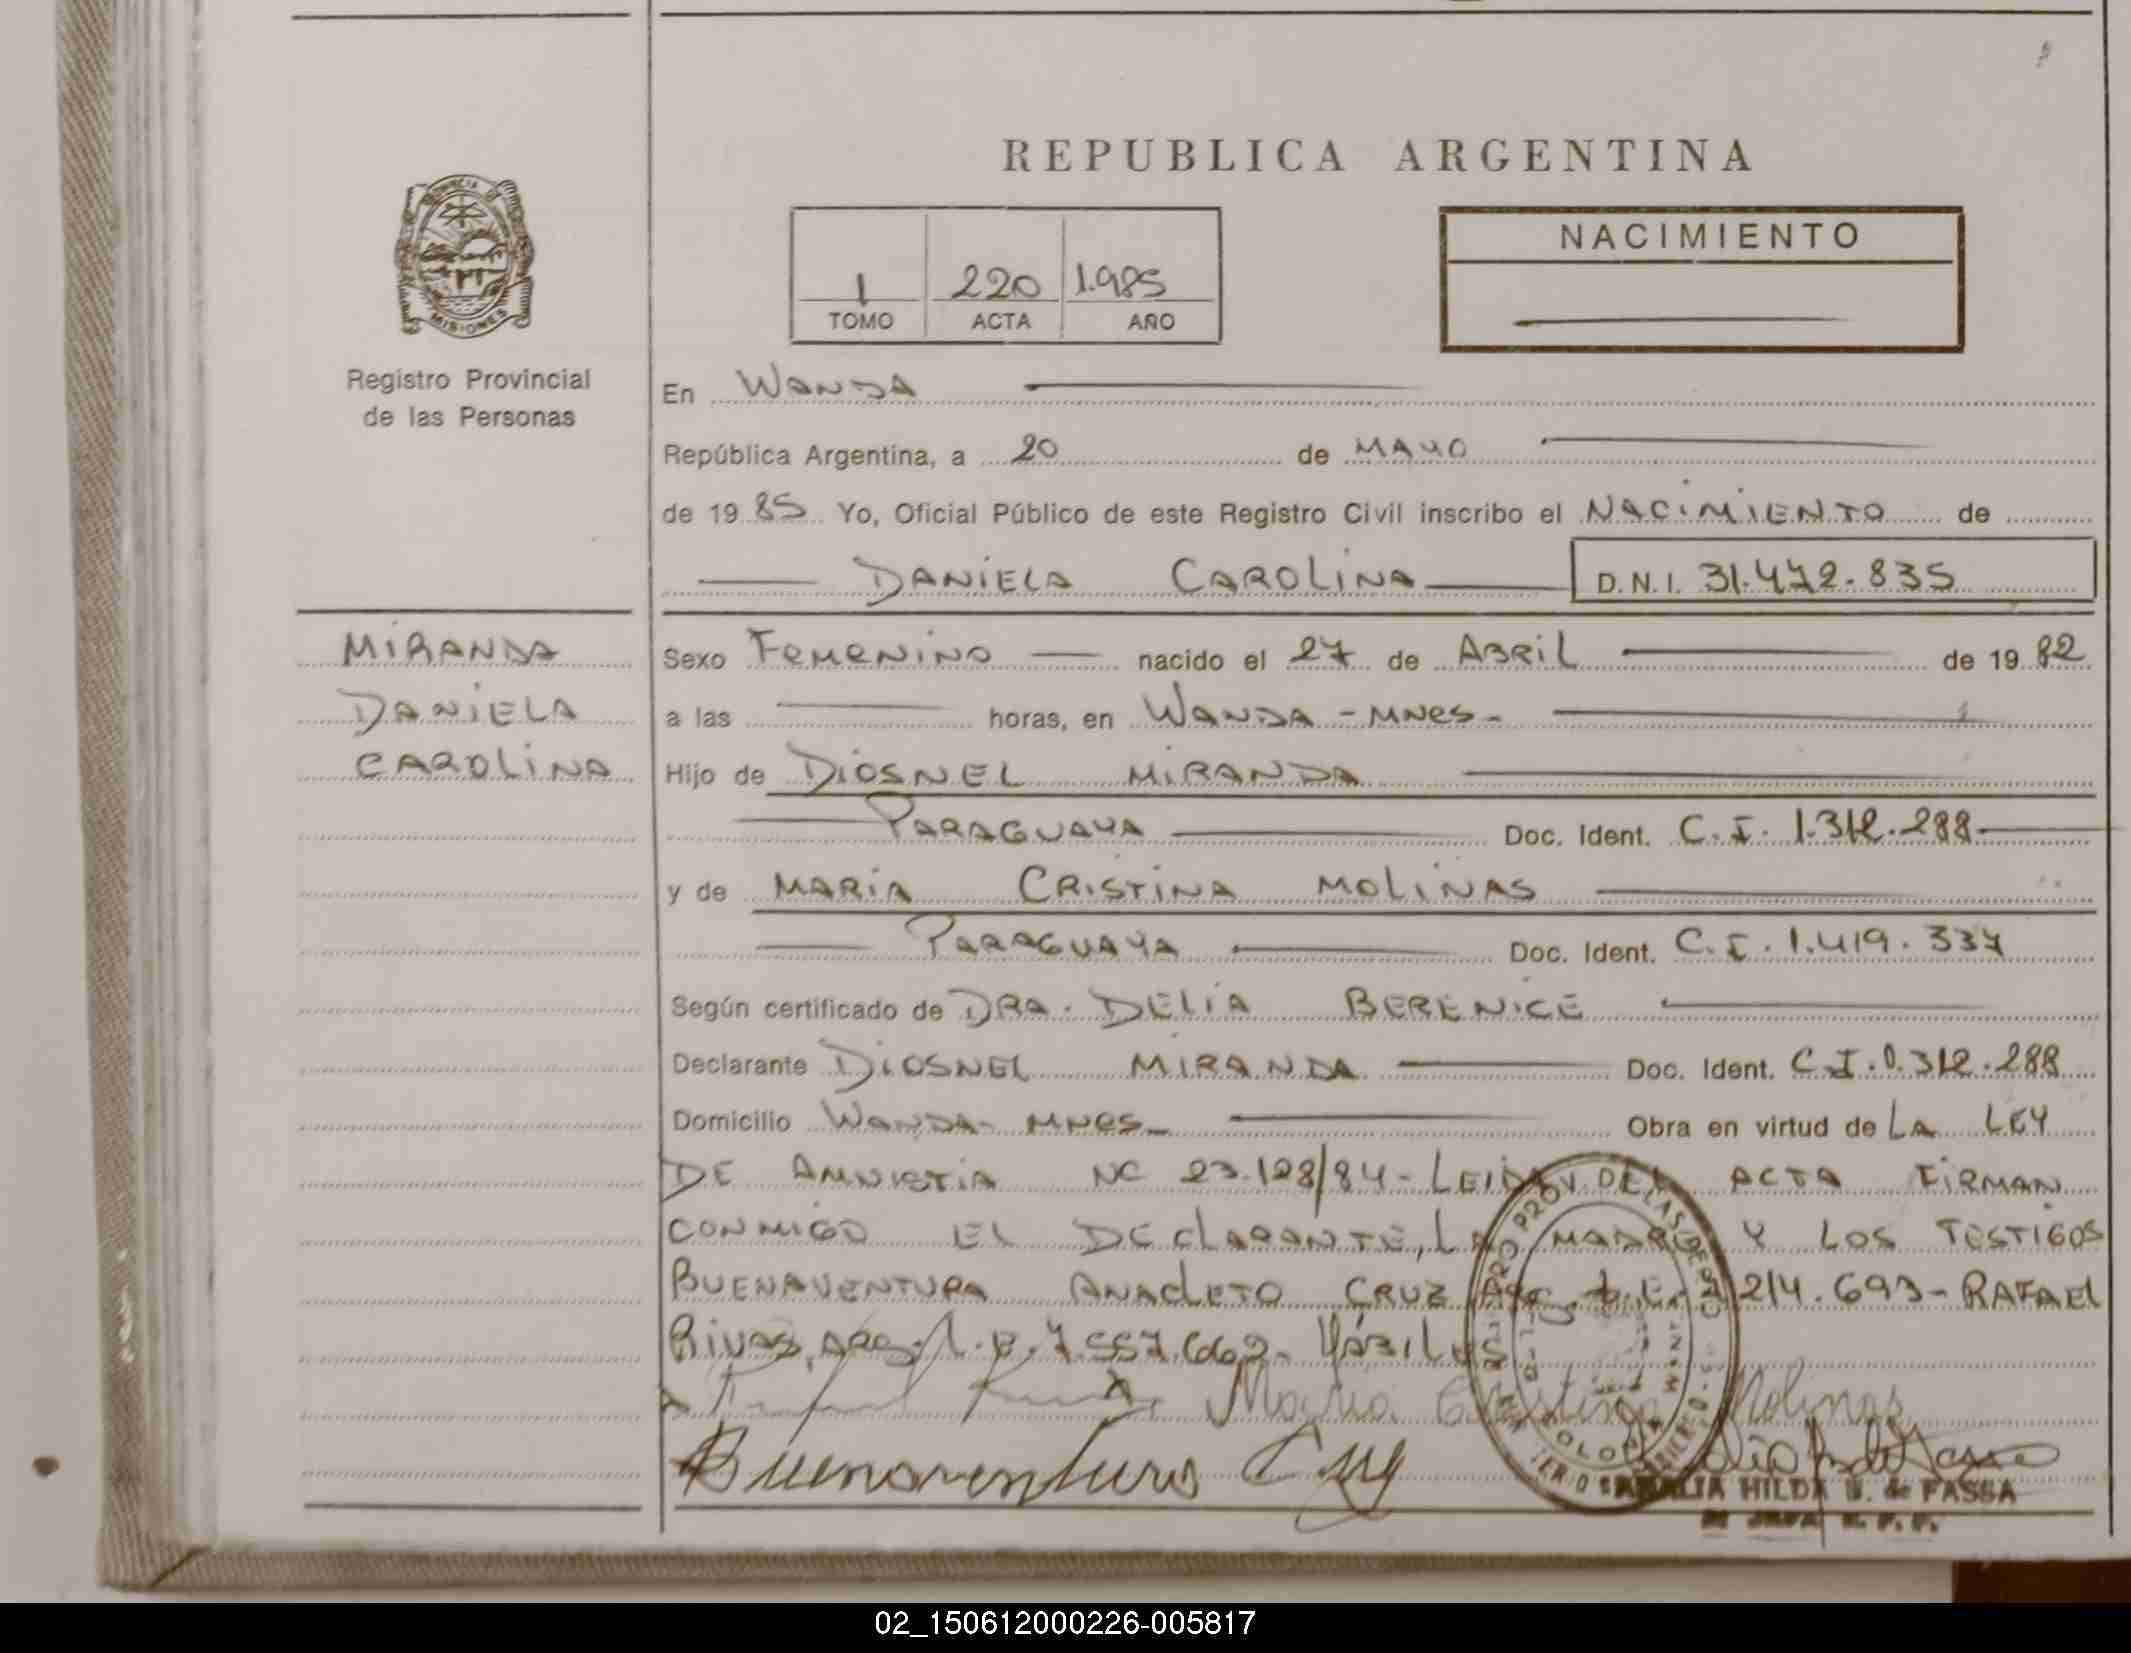 REPUBLICA ARGENTINA
PROVINCIA DE MISIONES
Registro Provincial
de las Personas
1 220 1.985
TOMO ACTA AÑO
NACIMIENTO
En WANDA
República Argentina, a 20 de MAYO
de 19 85 Yo, Oficial Público de este Registro Civil inscribo el NACIMIENTO de
DANIELA CAROLINA D.N.I. 31.472.835
MIRANDA
DANIELA
CAROLINA
Sexo FEMENINO nacido el 27 de ABRIL de 19 82
a las horas, en WANDA - MNES-
Hijo de DIOSNEL MIRANDA
PARAGUAYA Doc. Ident. C.I. 1.312.288
y de MARIA CRISTINA MOLINAS
PARAGUAYA Doc. Ident. C.I. 1.419.337
Según certificado de DRA. DELIA BERENICE
Declarante DIOSNEL MIRANDA Doc. Ident. C.I. 312.288
Domicilio WANDA- MNES- Obra en virtud de LA LEY
DE AMNISTIA 23.128/84- LEIDA DEL ACTA FIRMAN
CONMIGO EL DECLARANTE, LA MADRE Y LOS TESTIGOS
BUENAVENTURA ANACLETO CRUZ 214.693- RAFAEL
RIVAS, ARG. 7.557.662-
Maria Cristina Molinas
Buenaventura Cruz
AMALIA HILDA de FASSA
02_150612000226-005817